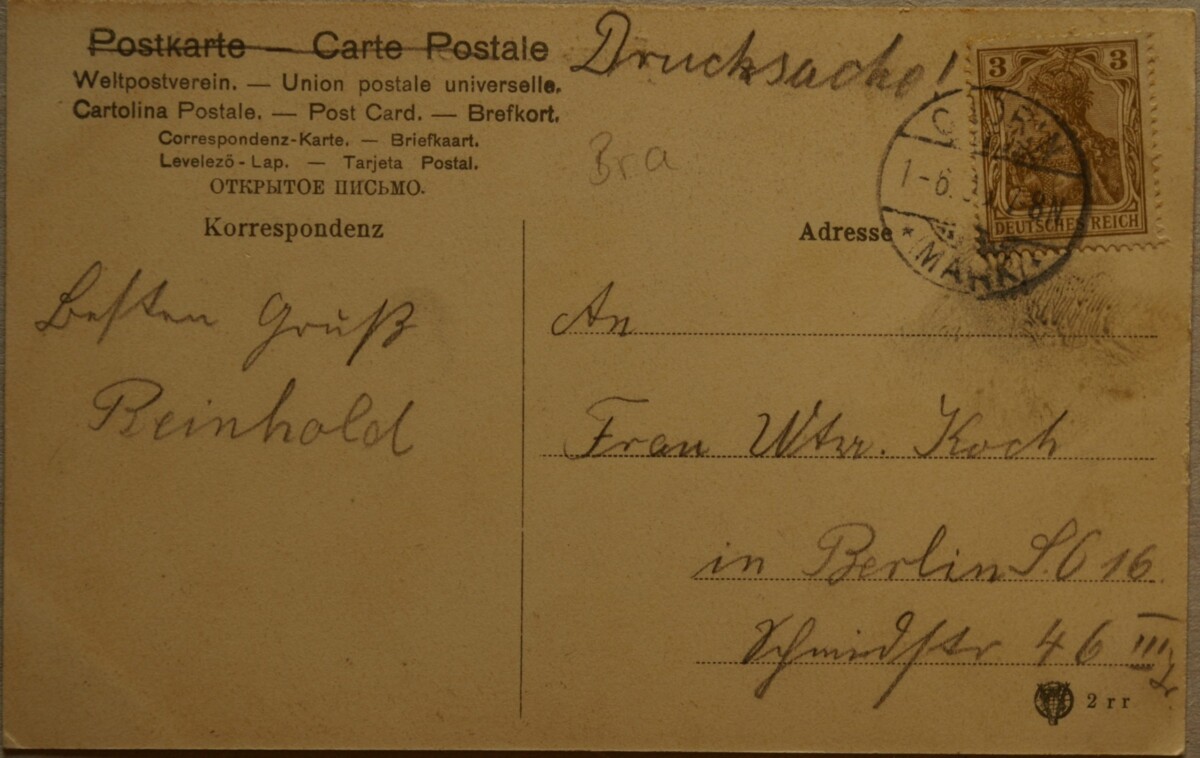 Postkarte — Carte Postale
Drucksache!
Weltpostverein. — Union postale universelle.
Cartolina Postale. — Post Card. — Brefkort.
Correspondenz-Karte. — Briefkaart.
Levelező-Lap. — Tarjeta Postal.
ОТКРЫТОЕ ПИСЬМО.
Bra
3 3
DEUTSCHES REICH
1-6. 8N
(MARK)
Korrespondenz
Adresse
Besten Gruß
Reinhold
An
Frau Wtw. Koch
in Berlin S.O 16.
Schmidstr 46 III
2 rr